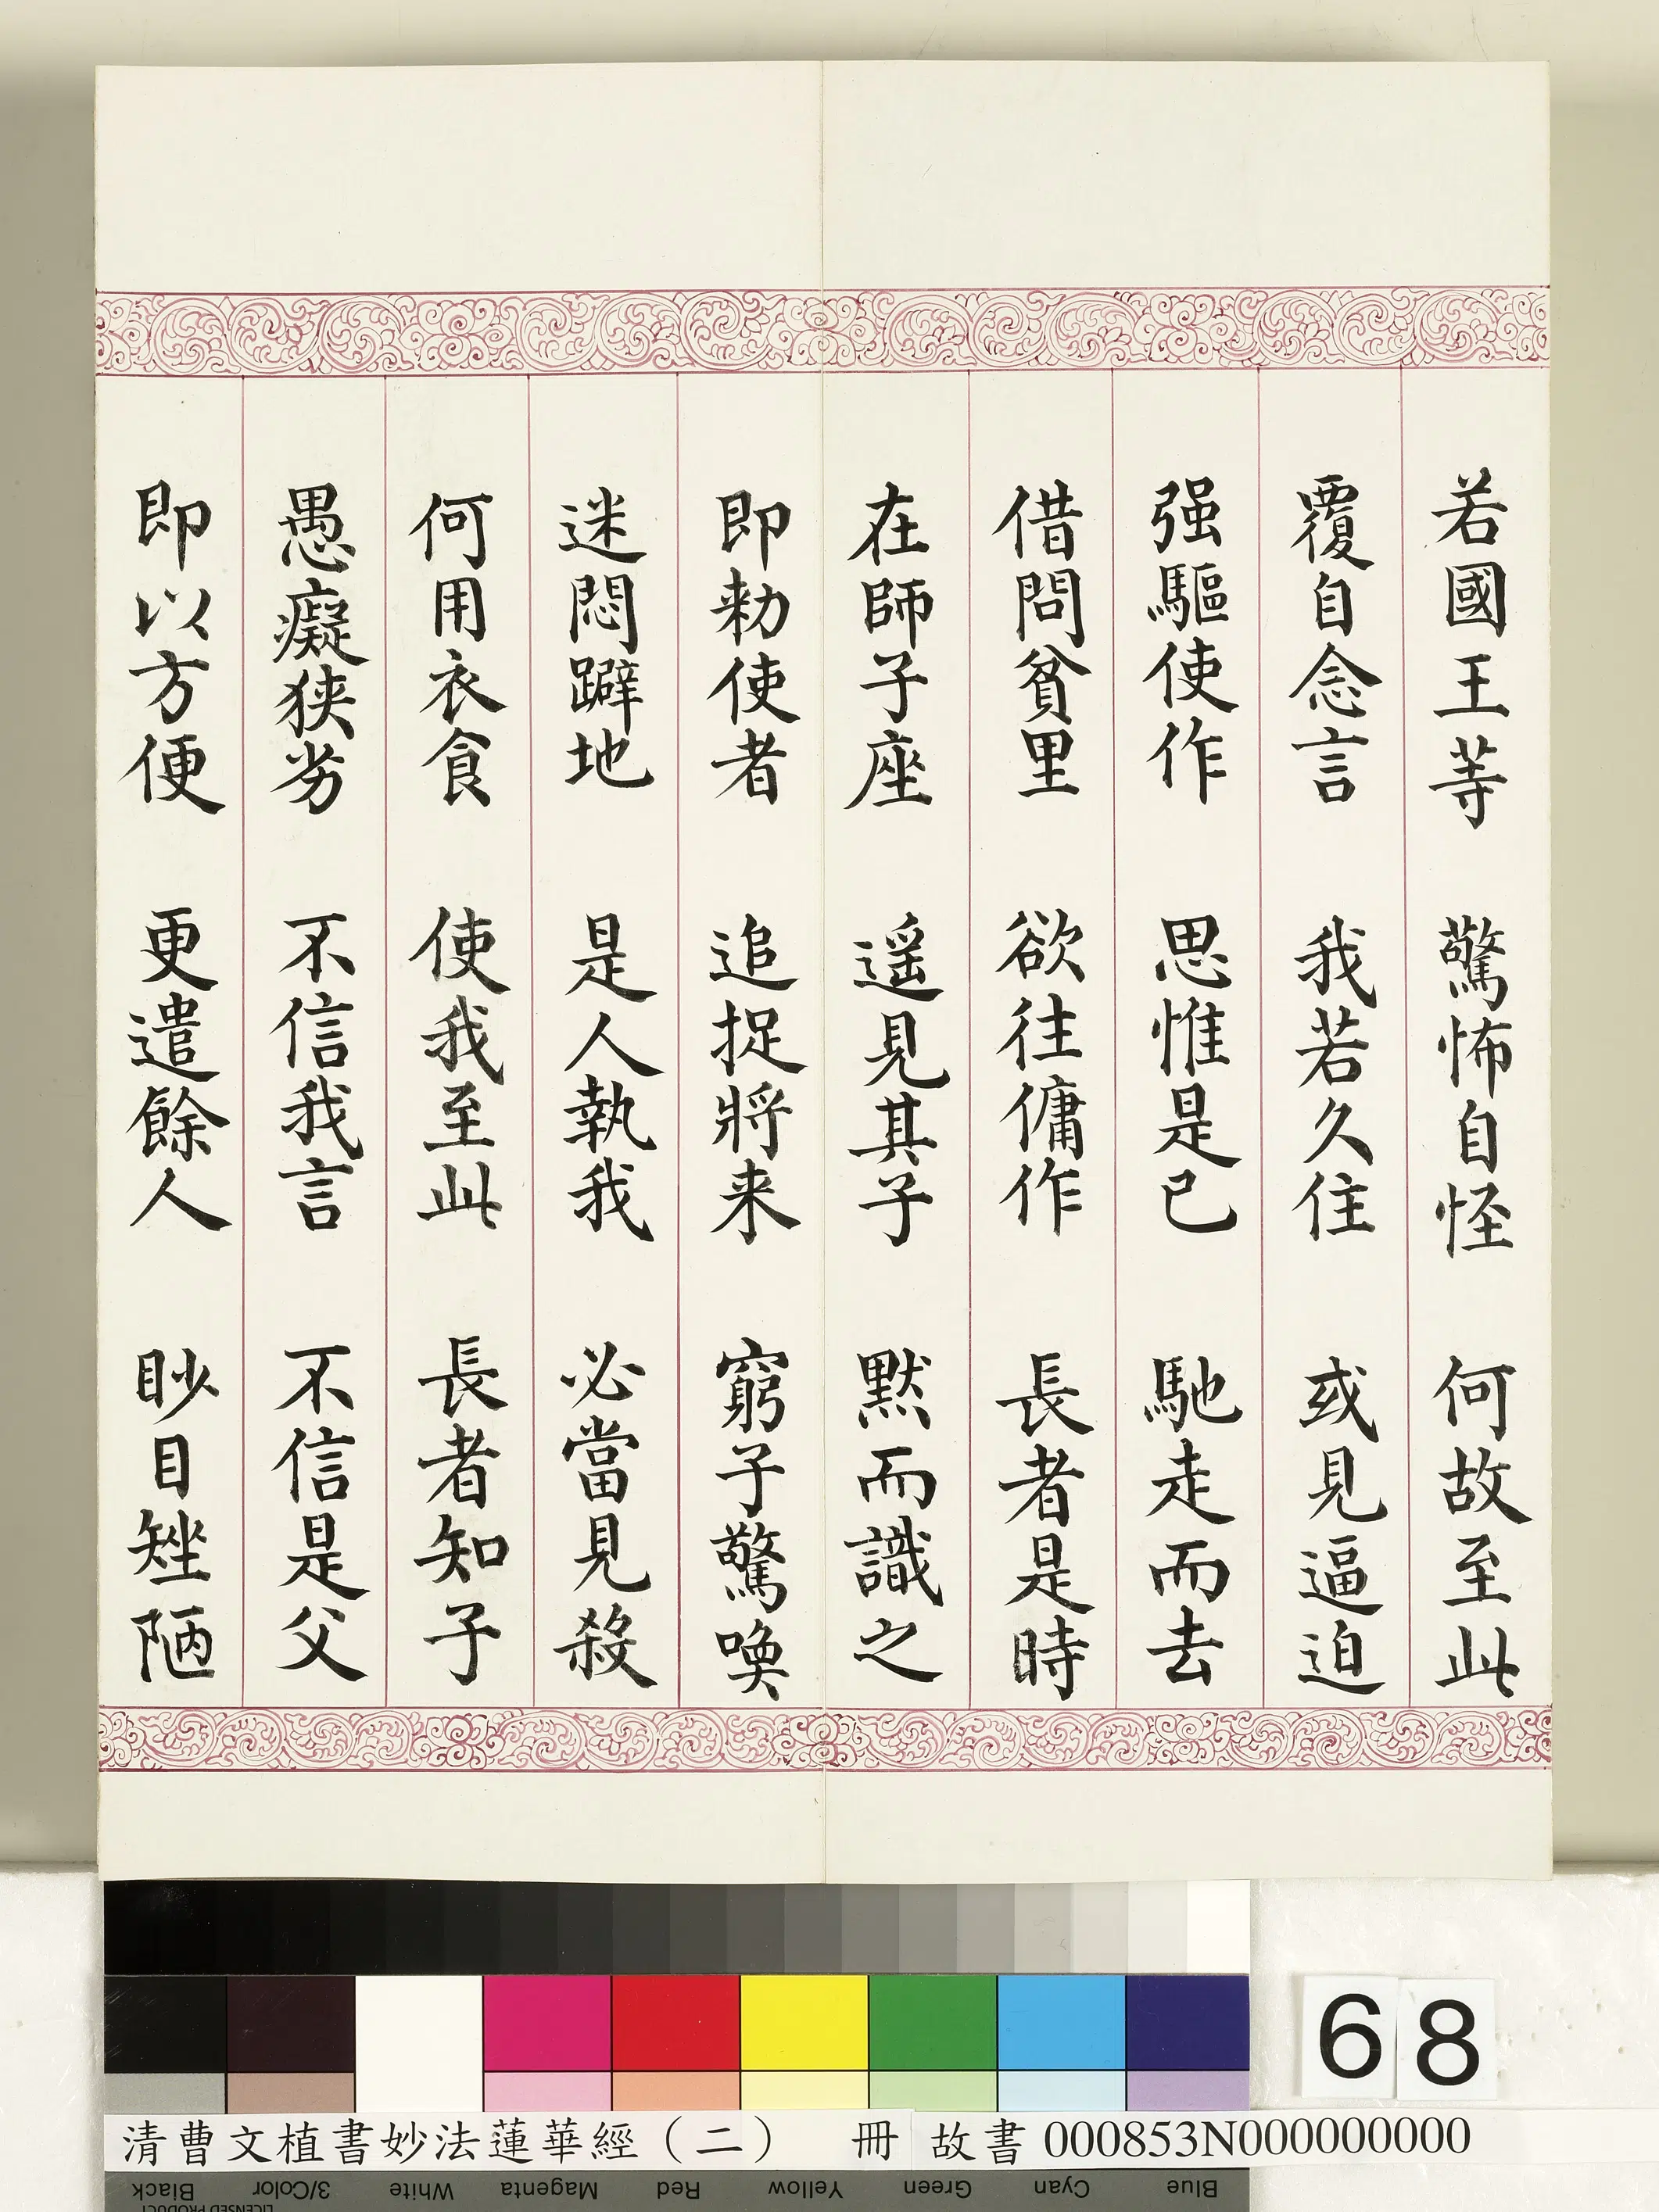 若國王等 驚怖自怪 何故至此
覆自念言 我若久住 或見逼迫
强驅使作 思惟是已 馳走而去
借問貧里 欲往傭作 長者是時
在師子座 遥見其子 默而識之
即勑使者 追捉將来 窮子驚喚
迷悶躃地 是人執我 必當見殺
何用衣食 使我至此 長者知子
愚癡狹劣 不信我言 不信是父
即以方便 更遣餘人 眇目矬陋
68
清曹文植書妙法蓮華經（二） 冊 故書 000853N000000000
Black 3/Color White Magenta Red Yellow Green Cyan Blue
LICENSED PRODUCT